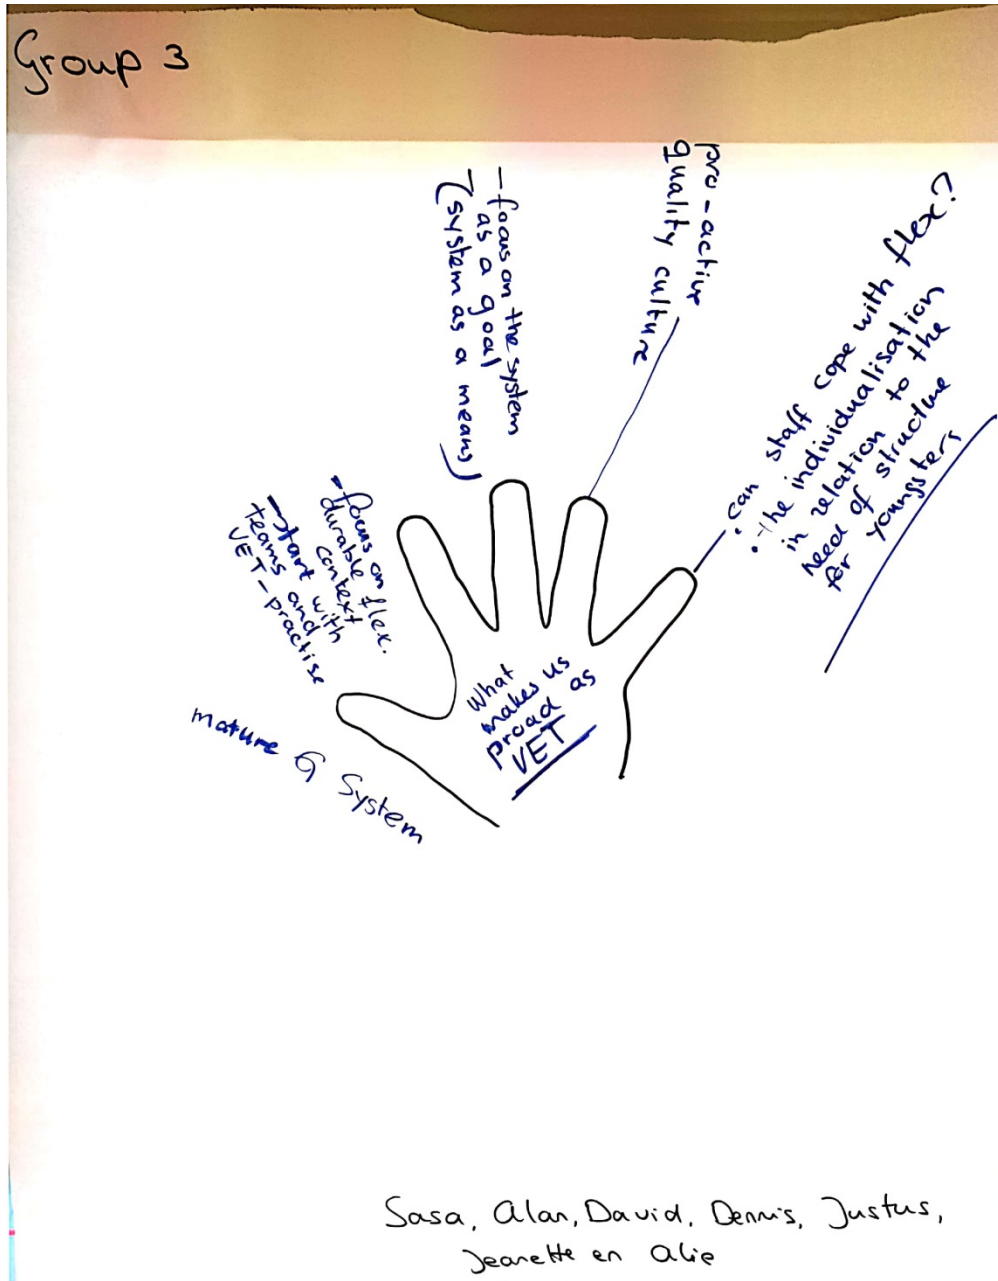 Group 3
mature Q System
- focus on flex.
durable
context
- start with
teams and
VET-practise
- focus on the system
as a goal
(system as a means)
pro-active
quality culture
• can staff cope with flex?
• the individualisation
in relation to the
need of structure
for youngsters
What
makes us
proad as
VET
Sasa, Alan, David, Dennis, Justus,
Jeanette en Alie